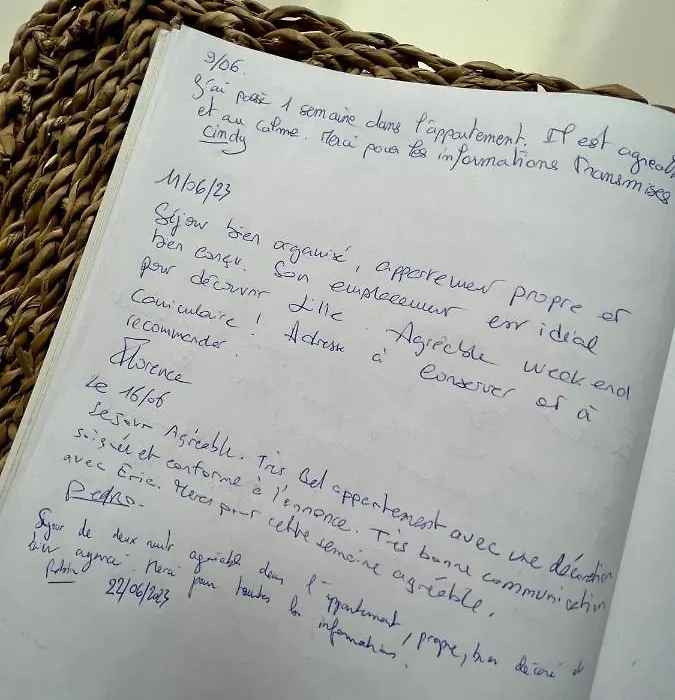 9/06.
J'ai passé 1 semaine dans l'appartement. Il est agréable
et au calme. Merci pour les informations transmises
Cindy
11/06/23
Séjour bien organisé, appartement propre et
bien conçu. Son emplacement est idéal
pour découvrir Lille. Agréable week-end
caniculaire ! Adresse à conserver et à
recommander.
Florence
Le 16/06
Sejour Agréable. Très Bel appartement avec une décoration
soignée et conforme à l'annonce. Très bonne communication
avec Eric. Merci pour cette semaine agréable.
Pedro.
Séjour de deux nuits agréable dans l'appartement, propre, bien décoré et
bien agencé. Merci pour toutes les informations.
22/06/2023